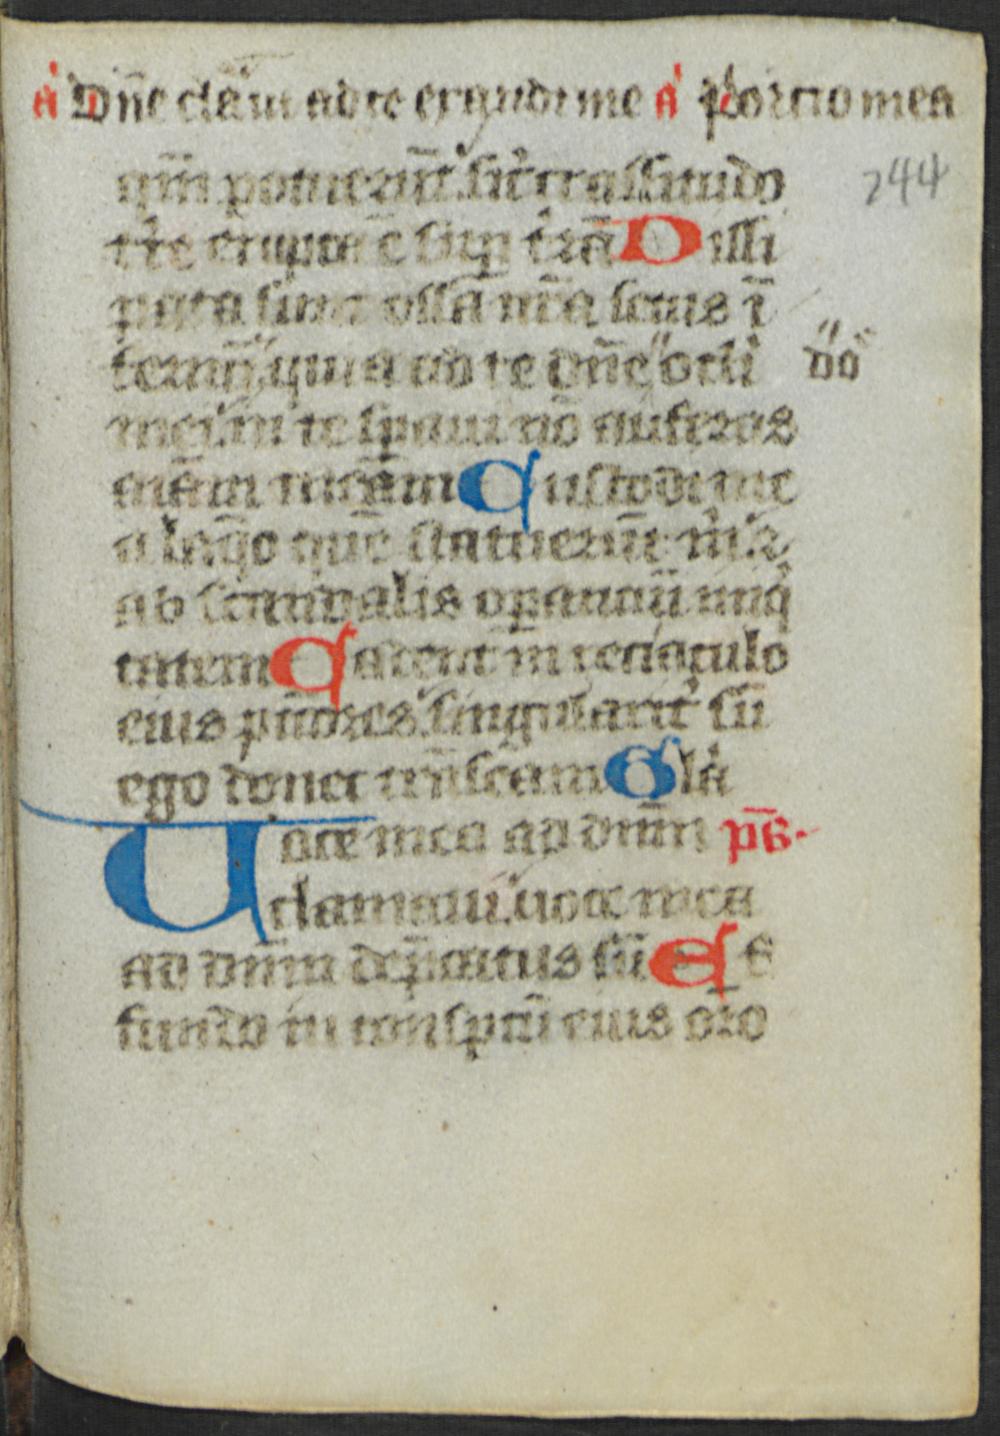 a᷆ Dn̄e clāui ad te exaudi me a᷆ Porcio mea
244
qm̄ potuerūt sic̄ crassitudo
tr̄e erupta ē sup̄ trā Dissi
pata sunt ossa nr̄a secus ī
fernū quia ad te dn̄e dn̄e ocli
mei in te sp̄aui nō auferas
aīam meam Custodi me
a laq̄o quē statuerūt m̄ &
ab scandalis op̄anciū iniq̄
tatem Cadent in reciaculo
eius p̄cc̄ores singularit̄ sū
ego donec trāseam Gla
Uoce mea ad dn̄m ps̄.
clamaui uoce mea
ad dn̄m dep̄catus sū Ef
fundo in consp̄cū eius oro